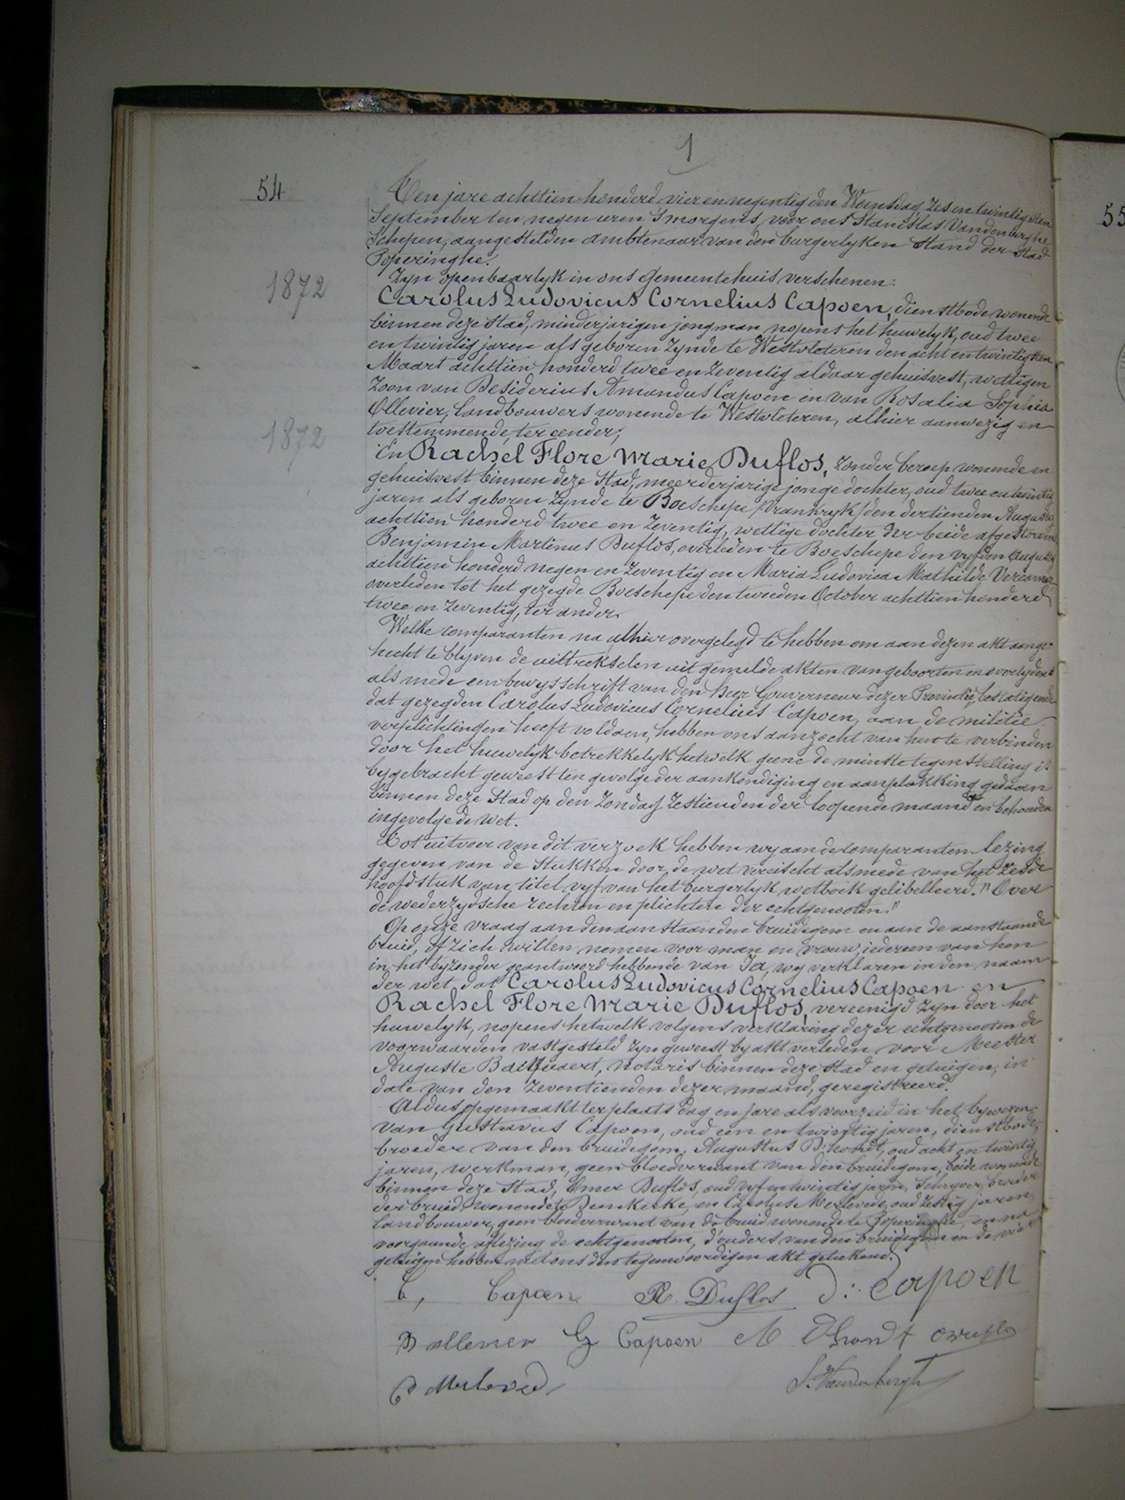 1
54
Ten jare achttien honderd vier en negentig den Weensdag zes en twintigsten
September ten negen uren s'morgens, voor ons Stanislas Vandenberghe
Schepen, aangestelden ambtenaar van den burgerlyken Stand der Stad
Poperinghe.
Zyn openbaarlyk in ons gemeentehuis verschenen:
1872
Carolus Ludovicus Cornelius Capoen, dienstbode wonende
binnen deze Stad, minderjarigen jongman nopens het huwelyk, oud twee
en twintig jaren als geboren zynde te Westvleteren den acht en twintigsten
Maart achttien honderd twee en zeventig aldaar gehuisvest, wettigen
zoon van Desiderius Amandus Capoen en van Rosalia Sophia
Ollevier, landbouwers wonende te Westvleteren, alhier aanwezig en
toestemmende, ter eender;
1872
En Rachel Flore Marie Duflos, zonder beroep wonende en
gehuisvest binnen deze Stad, meerderjarige jonge dochter, oud twee en twintig
jaren als geboren zynde te Boeschepe (Vrankryk) den dertienden Augusty
achttien honderd twee en zeventig, wettige dochter der beide afgestorven
Benjamin Martinus Duflos, overleden te Boeschepe den vyfden Augusty
achttien honderd negen en zeventig en Maria Ludovica Mathilde
overleden tot het gezegde Boeschepe den tweeden October achttien honderd
twee en zeventig, ter ander.
Welke comparanten na alhier overgelegd te hebben om aan dezen akt aange-
hecht te blyven de uittrekselen uit gemelde akten van geboorten en overlydens
als mede een bewysschrift van den Heer Gouverneur dezer Provintie, bestatigende
dat gezegden Carolus Ludovicus Cornelius Capoen, aan de militie
verplichtingen heeft voldaen, hebben ons aanzocht van hun te verbinden
door het huwelyk betrekkelyk hetwelk geene de minste tegenstelling is
bygebracht geweest ten gevolge der aankondiging en aanplakking gedaan
binnen deze Stad op den Zondag zestienden der loopende maand en behouden
ingevolge de wet.
Tot uitvoer van dit verzoek hebben wy aan de comparanten lezing
gegeven van de stukken door de wet vereischt alsmede van het zesde
hoofdstuk van titel vyf van het burgerlyk wetboek gelibelleerd "Over
de wederzydsche rechten en plichten der echtgenooten."
Op onze vraag aan den aanstaanden bruidegom en aan de aanstaande
bruid, of zich willen nemen voor man en vrouw, iedereen van hen
in het byzonder geantwoord hebbende van Ja, wy verklaren in den naam
der wet, dat Carolus Ludovicus Cornelius Capoen en
Rachel Flore Marie Duflos, vereenigd zyn door het
huwelyk, nopens hetwelk volgens verklaring dezer echtgenooten de
voorwaarden vastgesteld zyn geweest by akt verleden voor Meester
Auguste Notaris binnen deze stad en getuigen, in
date van den zeventienden dezer maand, geregistreerd.
Aldus opgemaakt ter plaats dag en jare als voorzeid in het bywezen
van Gustavus Capoen, oud een en twintig jaren, dienstbode,
broeder van den bruidegom, Augustus D'hondt, oud acht en twintig
jaren, werkman, geen bloedverwant van den bruidegom, beide wonende
binnen deze Stad, Omer Duflos, oud vyf en twintig jaren, broeder
der bruid wonende te en Carolus oud zestig jaren,
landbouwer, geen bloedverwant van de bruid wonende te Poperinghe, en na
voorgaande aflezing de echtgenooten, d'ouders van den bruidegom en de vier
getuigen hebben met ons den tegenwoordigen akt geteekend.
C, Capoen R. Duflos D: Capoen
R ollevier G Capoen A Dhondt
S. Vandenberghe